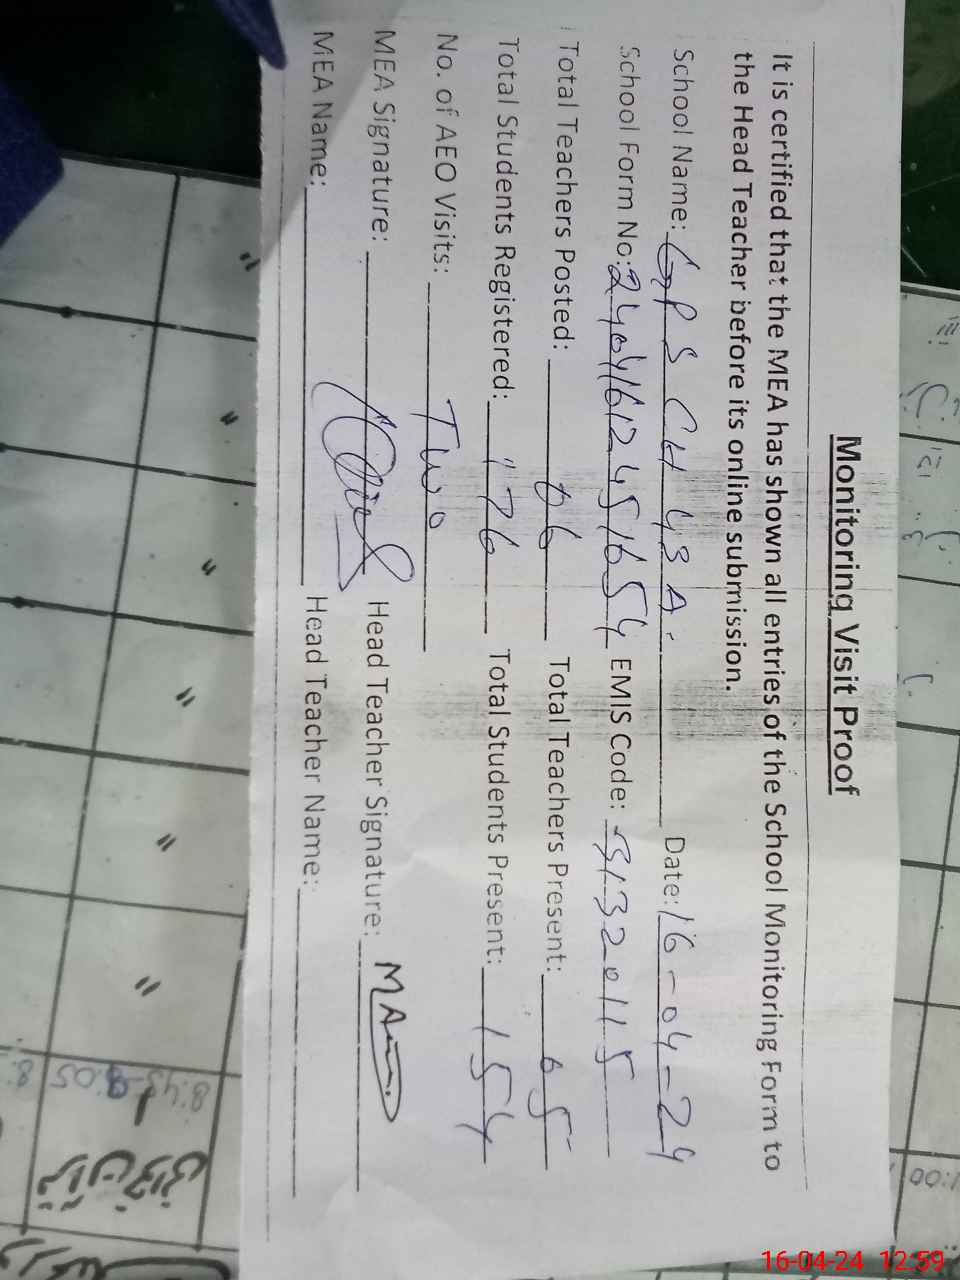 Monitoring Visit Proof
It is certified that the MEA has shown all entries of the School Monitoring Form to
the Head Teacher before its online submission.
School Name: GPS CH 43A. Date: 16-04-24
School Form No: EMIS Code: 31320115
Total Teachers Posted: 06 Total Teachers Present: 05
Total Students Registered: 176 Total Students Present: 154
No. of AEO Visits: Two
MEA Signature: Head Teacher Signature:
MEA Name: Head Teacher Name:
8:45-9:05
1:00
16-04-24 12:59